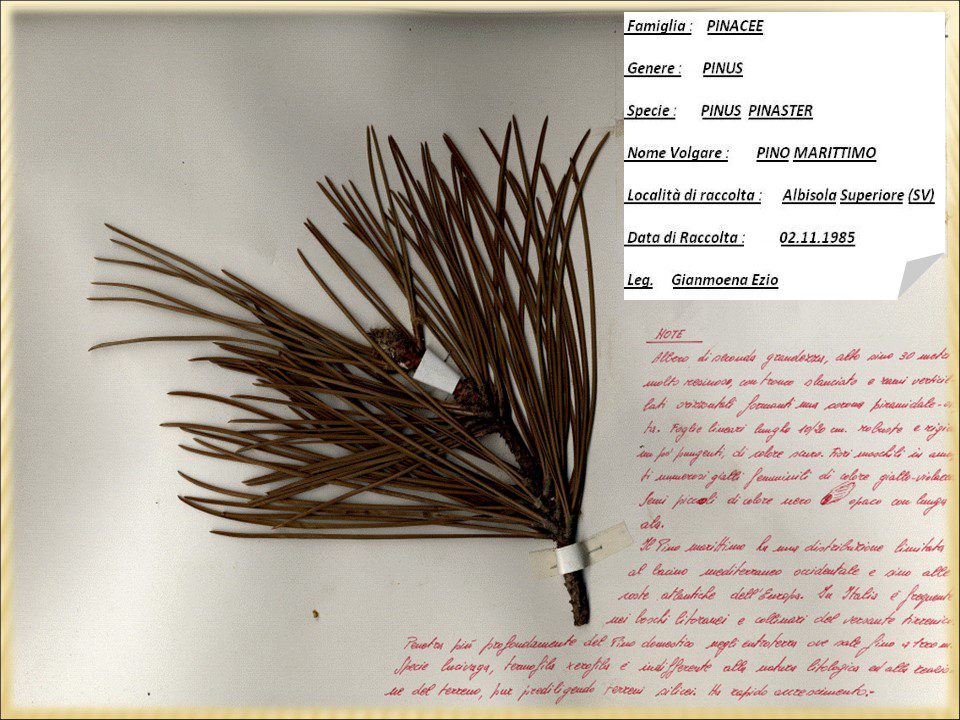 Famiglia : PINACEE
Genere : PINUS
Specie : PINUS PINASTER
Nome Volgare : PINO MARITTIMO
Località di raccolta : Albisola Superiore (SV)
Data di Raccolta : 02.11.1985
Leg. Gianmoena Ezio
NOTE
Albero di seconda grandezza, alto sino 30 metri
molto resinoso, con tronco slanciato e rami verticil
lati orizzontali formanti una corona piramidale-
ta. Foglie lineari lunghe 10/20 cm. robuste e rigi
un po' pungenti, di colore scuro. Fiori maschili in ame
ti numerosi gialli femminili di colore giallo-violac
Semi piccoli di colore nero opaco con lunga
ala.
Il Pino marittimo ha una distribuzione limitata
al bacino mediterraneo occidentale e sino alle
coste atlantiche dell'Europa. In Italia è frequente
nei boschi litoranei e collinari del versante tirrenico
Penetra più profondamente del Pino domestico negli entroterra ove sale fino a
Specie lucivaga, termofila xerofila e indifferente alla natura litologica ed alla reazio
ne del terreno, pur prediligendo terreni silicei. Ha rapido accrescimento.-